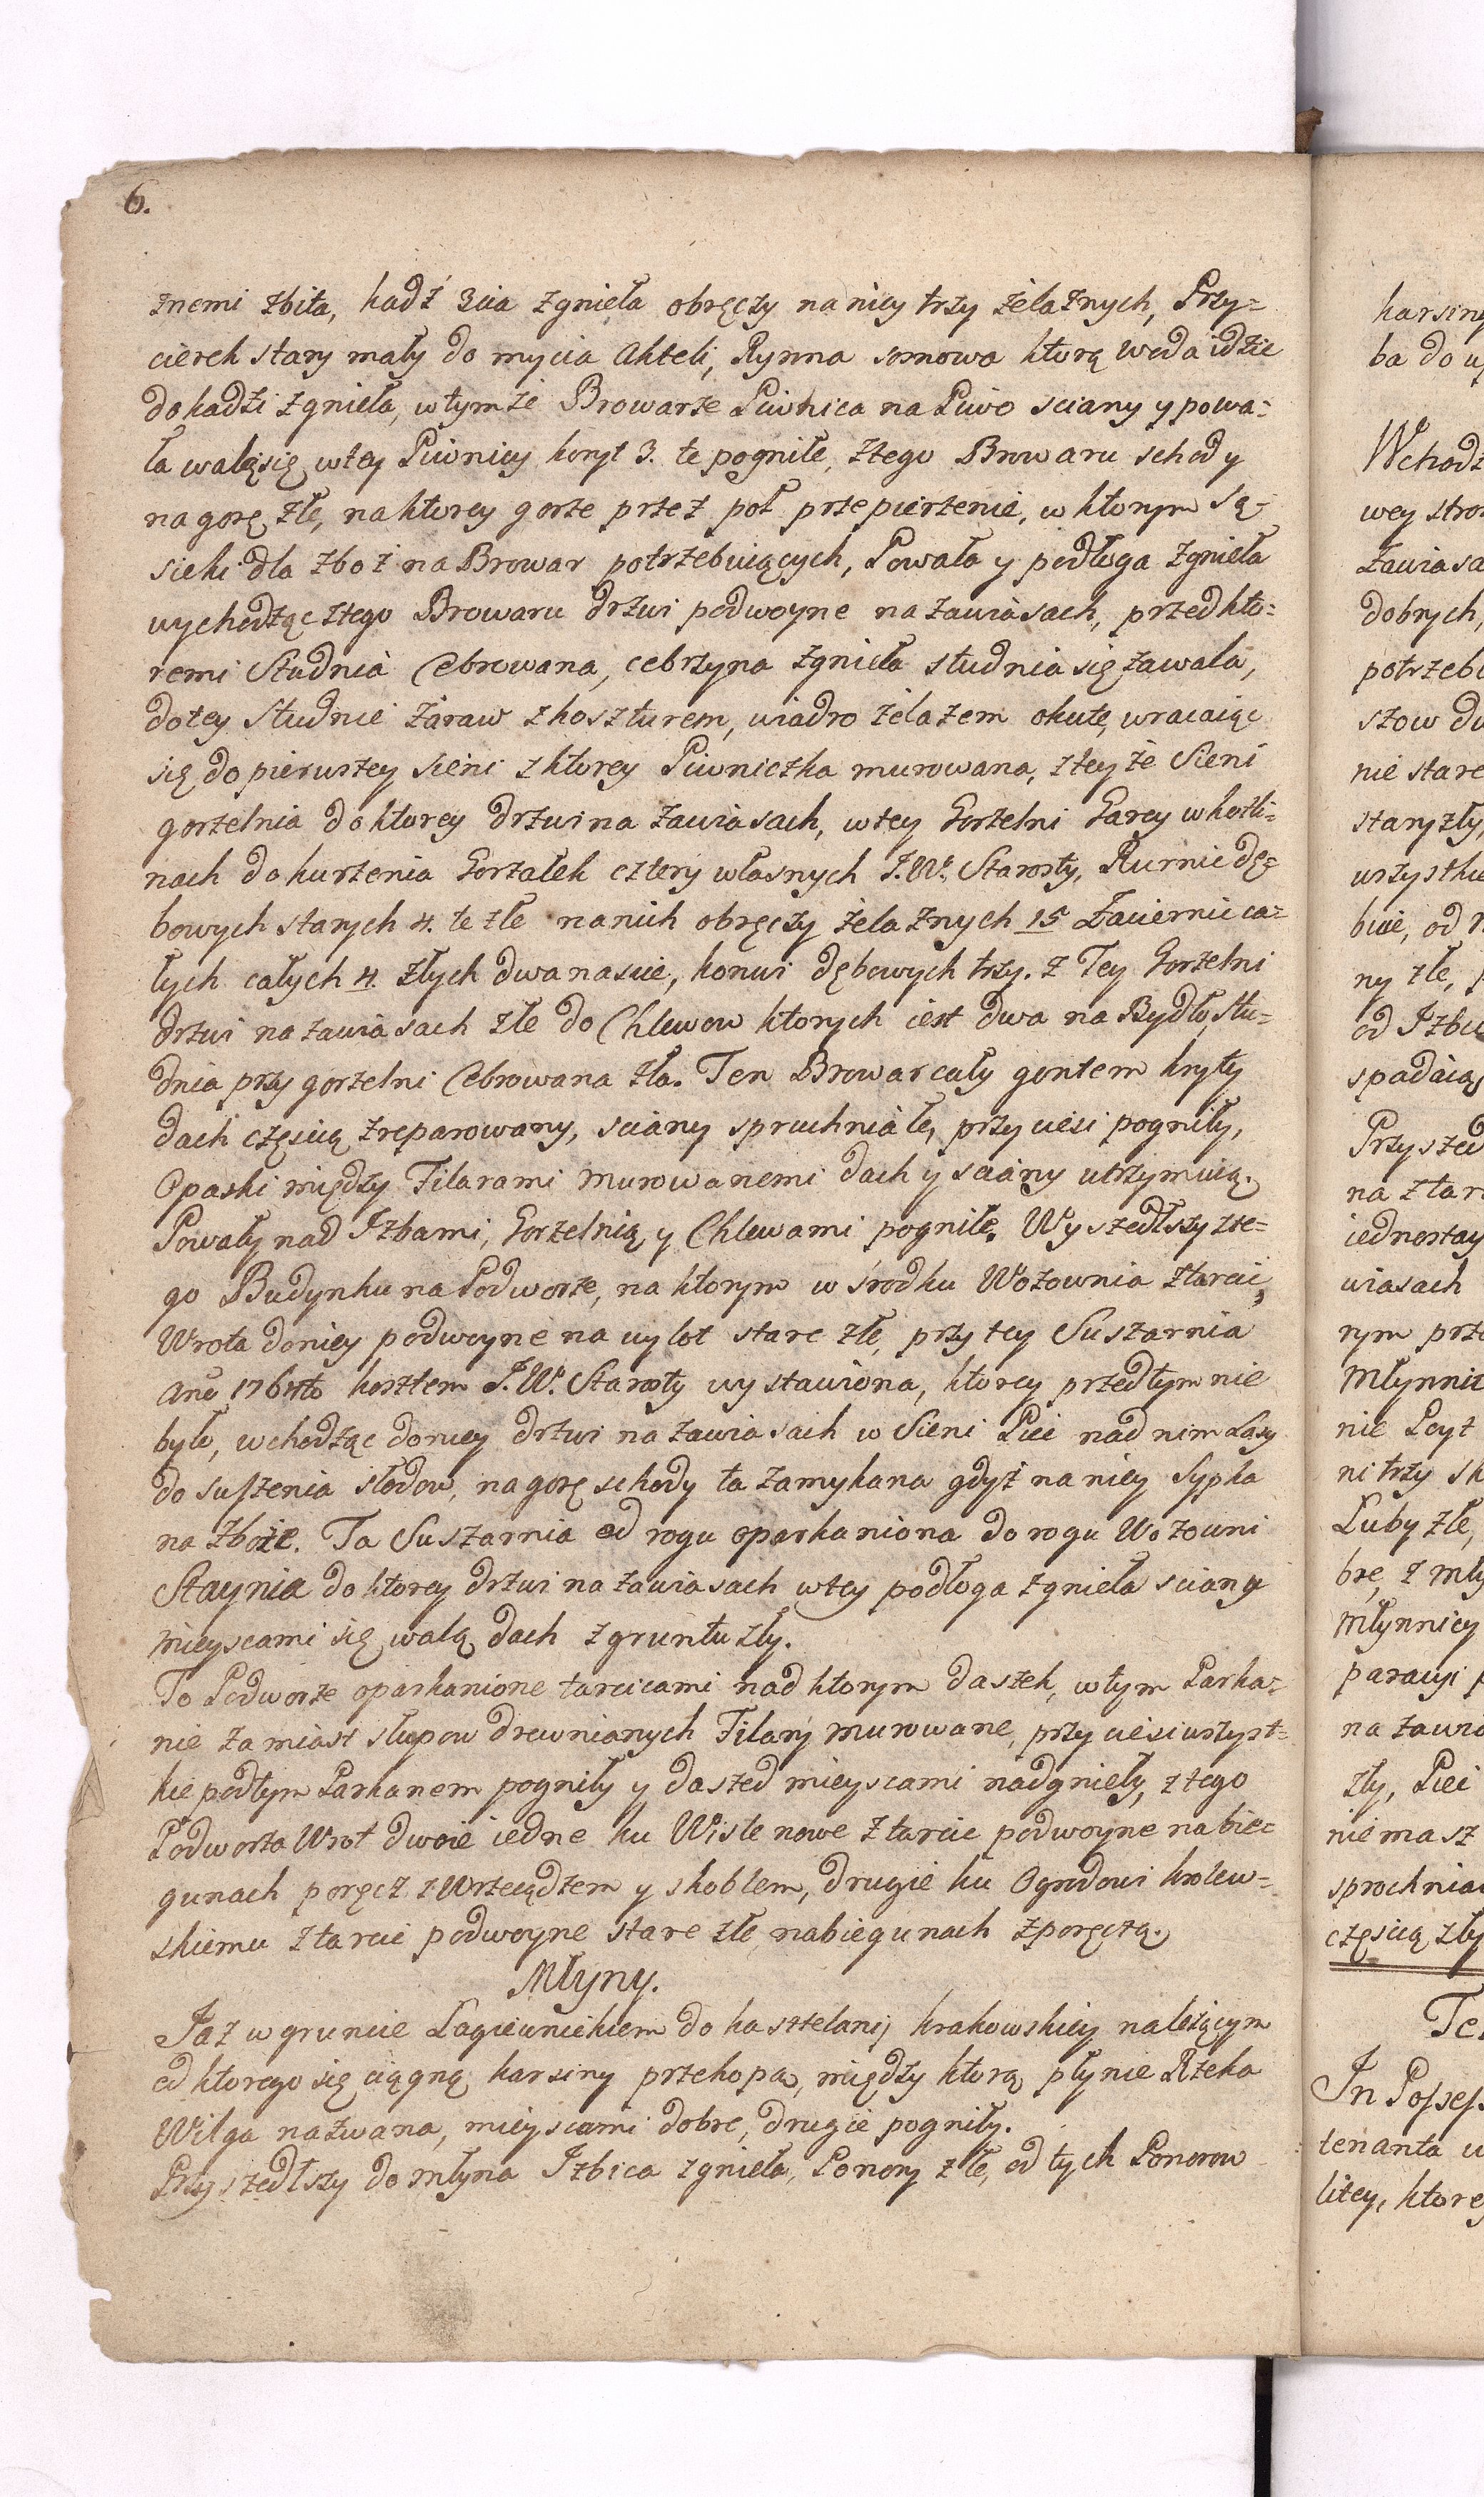 6.
znemi zbita, kadź 3cia zgnieła obręczy na niey trzy żelaznych, Przy=
cierek stary mały do mycia Akteli, Rynna somowa ktorą woda idzie
do kadzi zgnieła, w tymże Browarze Piwnica na Piwo sciany y powa=
ła walą się, w tey Piwnicy koryt 3. te pogniłe, z tego Browaru schody
na gorę złe, na ktorey gorze przez poł przepierzenie, w ktorym są=
sieki dla zboż na Browar potrzebuiących, Powała y podłoga zgnieła
wychodząc z tego Browaru drzwi podwoyne na zawiasach, przed kto=
remi Studnia Cebrowana, cebrzyna zgnieła studnia się zawala,
do tey studnie żaraw z kosturem, wiadro żelazem okute, wracaiąc
się do pierwszey sieni z ktorey Piwniczka murowana, z teyże Sieni
gorzelnia do ktorey drzwi na zawiasach, w tey Gorzelni Garcy w kotli=
nach do kurzenia Gorzałek cztery własnych J.W. Starosty, Rurnic dę=
bowych starych 4. te złe na nich obręczy żelaznych 15 Zaciernic ca=
łych całych 4. złych dwanascie, konwi dębowych trzy. Z Tey Gorzelni
drzwi na zawiasach złe do Chlewow ktorych iest dwa na Bydło, Stu=
dnia przy gorzelni Cebrowana zła. Ten Browar cały gontem kryty
dach częscią zreparowany, sciany spruchniałe, przyciesi pogniły,
Opaski między Filarami murowanemi dach y sciany utrzymuią.
Powały nad Izbami, Gorzelnią y Chlewami pogniłe. Wyszedłszy z te=
go Budynku na Podworze, na ktorym w środku Wozownia z tarcic,
Wrota do niey podwoyne na wylot stare złe, przy tey Suszarnia
Anno 1764to kosztem J.W. Starosty wystawiona, ktorey przedtym nie
było, wchodząc do niey drzwi na zawiasach w Sieni Piec nad nim Lasy
do suszenia słodow, na gorę schody ta zamykana gdyż na niey Sypka
na zboże. Ta Suszarnia od rogu oparkaniona do rogu Wozowni
Staynia do ktorey drzwi na zawiasach w tey podłoga zgnieła sciany
mieyscami się walą dach z gruntu zły.
To Podworze oparkanione tarcicami nad ktorym daszek, w tym Parka=
nie zamiast słupow drewnianych Filary murowane, przyciesi wszyst=
kie pod tym Parkanem pogniły y daszed mieyscami nadgnieły, z tego
Podworza Wrot dwoie iedne ku Wisle nowe z tarcic podwoyne na bie=
gunach poręcz z Wrzeciądzem y skoblem, drugie ku Ogrodowi krolew=
skiemu z tarcic podwoyne stare złe na biegunach z poręczą.
Młyny.
Jaz w gruncie Łagiewnickiem do kasztelanij krakowskiey należącym
od ktorego się ciągną karsiny przekopą, między ktorą płynie Rzeka
Wilga nazwana, mieyscami dobre, drugie pogniły.
Przyszedłszy do młyna Izbica zgnieła, Ponory złe, od tych Ponorow
karsiny
ba do
Wchodz
wey stron
zawiasa
dobrych,
potrzebu
szow du
nie stare
stary zły
wszystkie
bne, od
ny złe,
od Izbu
spadaią
Przyszed
na z tar
iednostay
wiasach
rym prze
Młynnic
nie Leyt
ni trzy sk
Luby złe,
bre, z mły
Młynnicy
paracyi p
na zawia
zły, Piec
nie masz
sprochnia
częscią zły
Te
In Posses
tenanta w
litey, ktorey